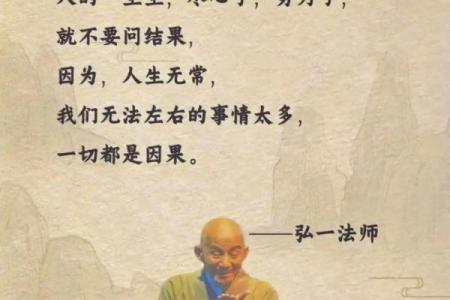 就不要问结果，
因为，人生无常，
我们无法左右的事情太多，
一切都是因果。
——弘一法师